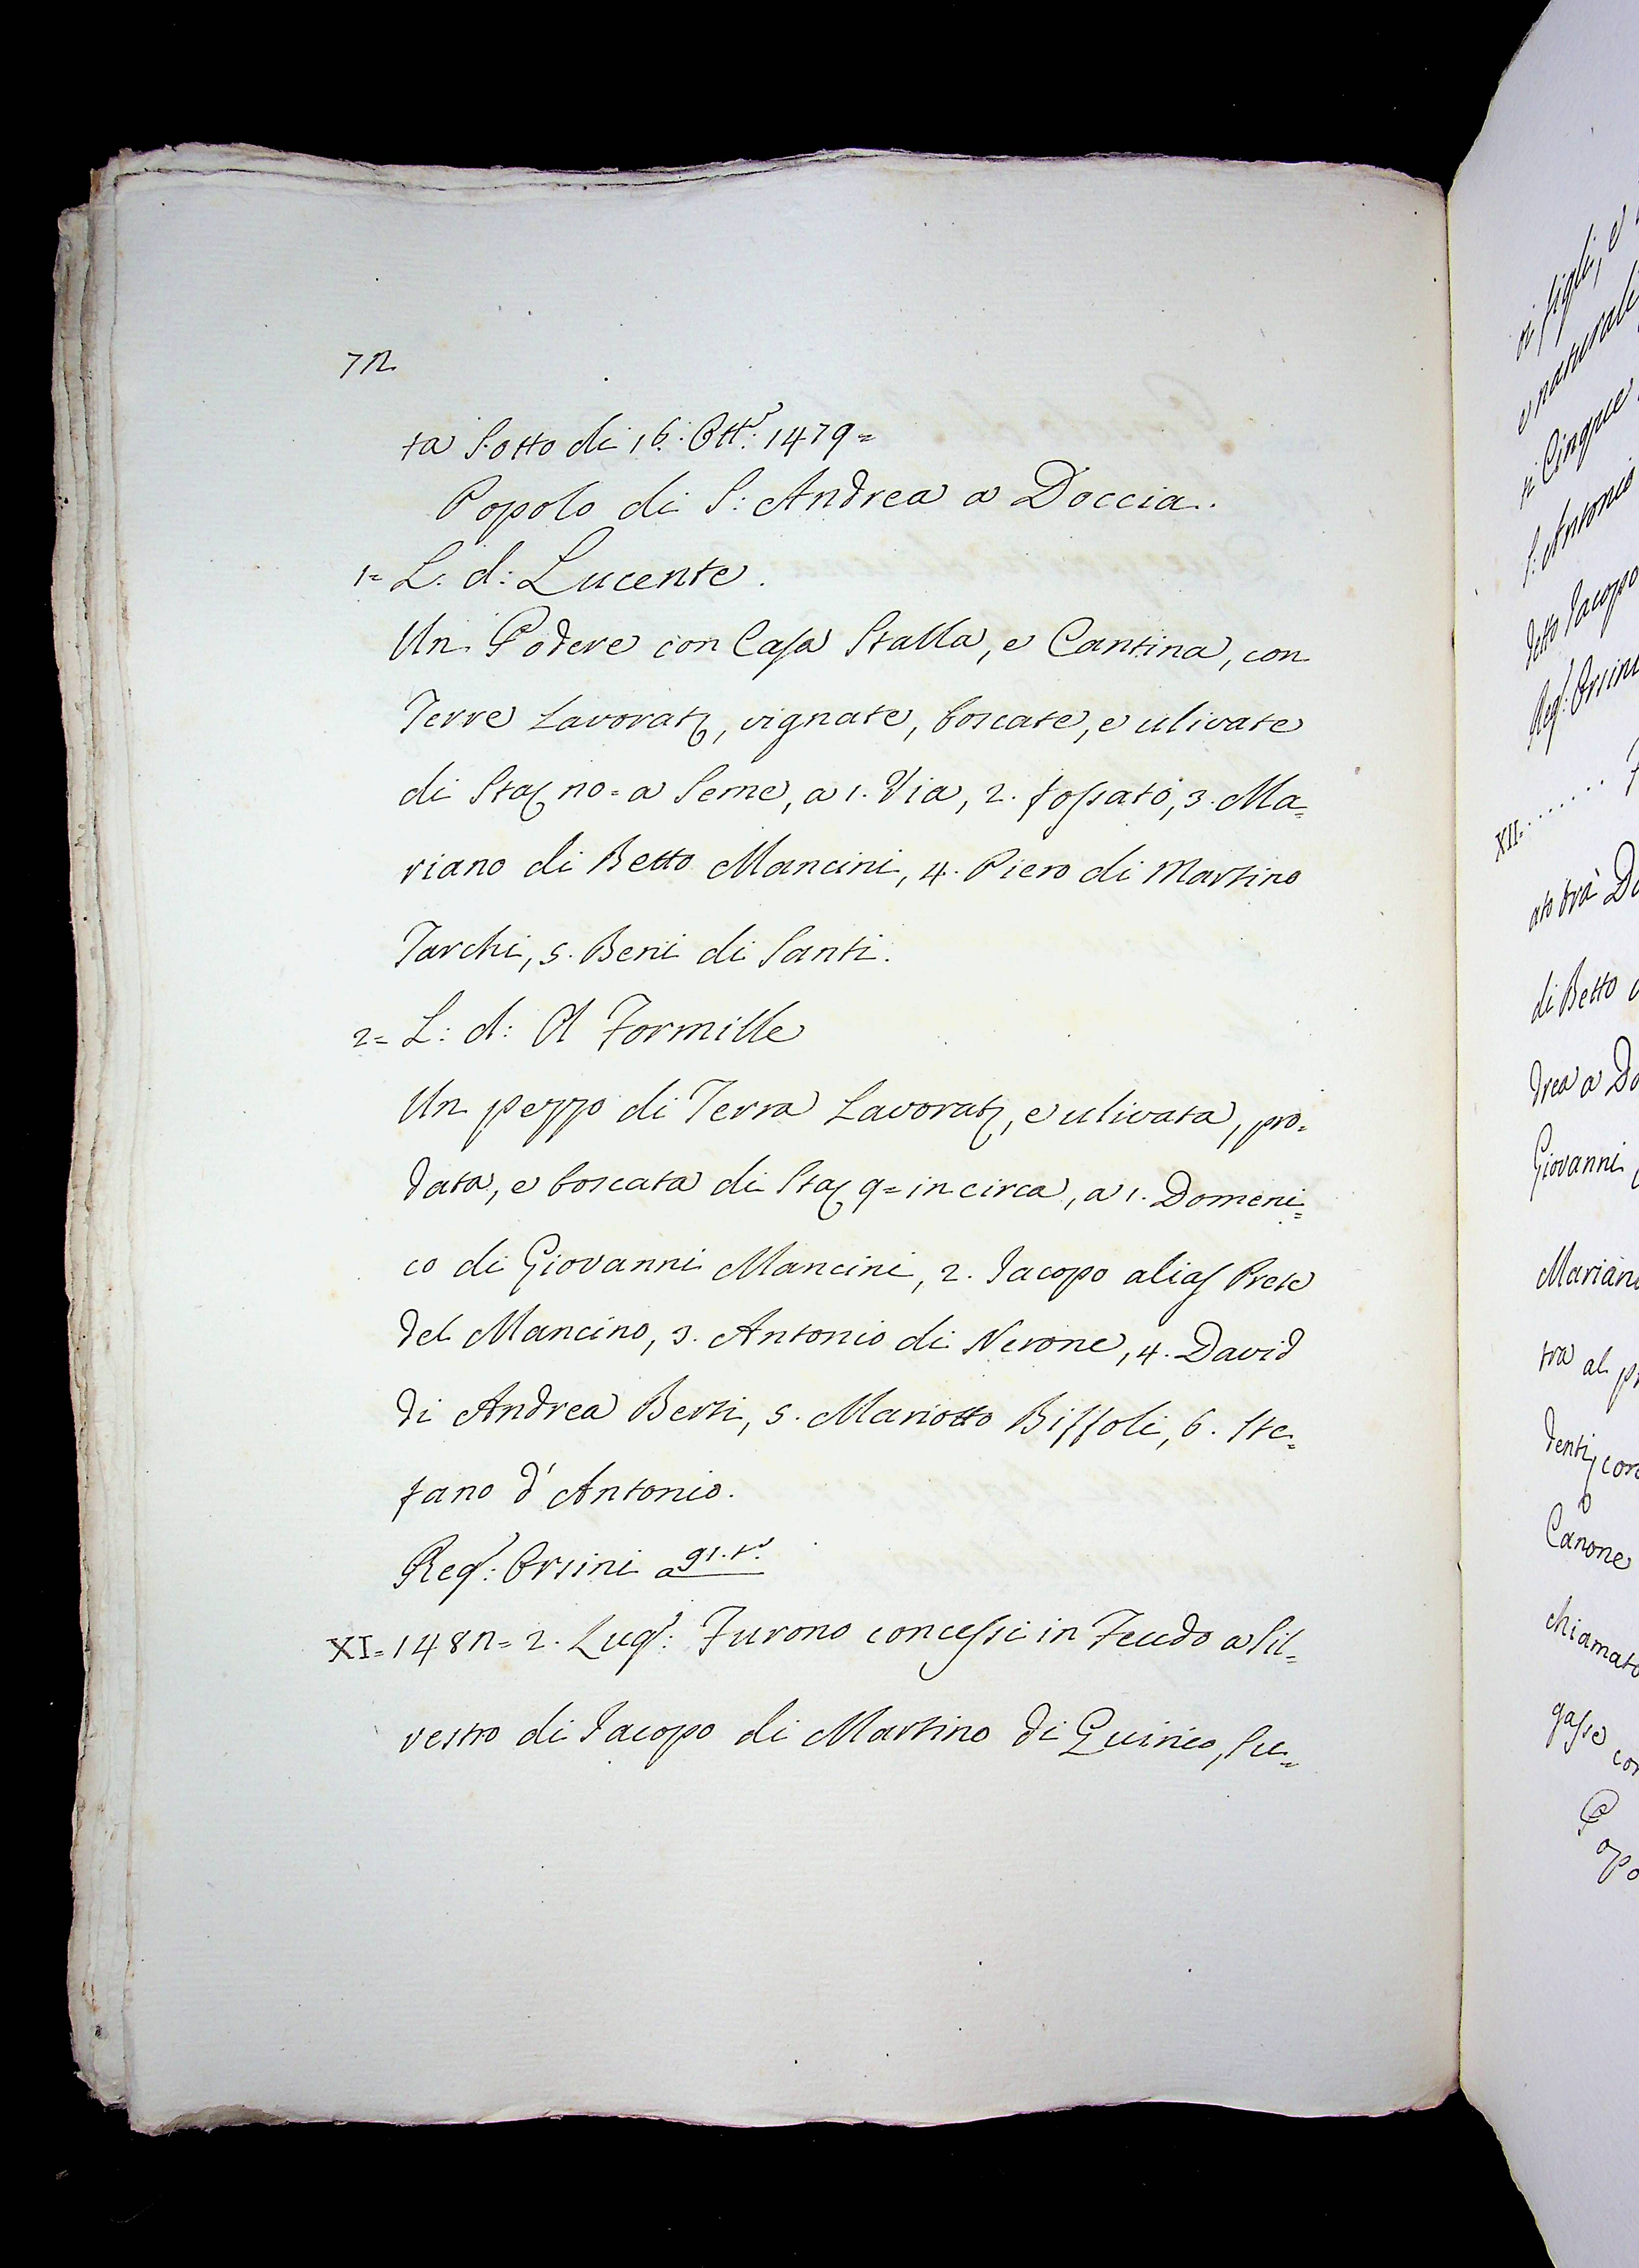 72
ta Sotto di 16. Ott.e 1479=
Popolo di S: Andrea a Doccia.
1= L. d: Lucente.
Un Podere con Casa Stalla, e Cantina, con
Terre Lavorat;, vignate, boscate, e ulivate
di Staj 20= a Seme, a 1. Via, 2. fossato, 3. Ma=
riano di Betto Mancini, 4. Piero di Martino
Tarchi, 5. Beni di Santi.
2= L: d: A Formille
Un pezzo di Terra Lavorat;, e ulivata, pro=
data, e boscata di Staj 9= in circa, a 1. Domeni=
co di Giovanni Mancini, 2. Jacopo alias Prete
del Mancino, 3. Antonio di Nerone, 4. David
di Andrea Berti, 5. Mariotto Biffoli, 6. Ste=
fano d'Antonio.
Reg.o: Orsini a 91. t.o
XI= 1482= 2. Lug.o: Furono concessi in Feudo a Sil=
vestro di Jacopo di Martino di Quirico, Su=
figli, e
e naturali
Cinque
S: Antonio
detto Jacopo
Reg.o: Orsini
XII= .......
ato trà Do
di Betto
drea a Do
Giovanni
Mariano
tra al pr
denti, con
Canone
chiamato
gasse con
Popo